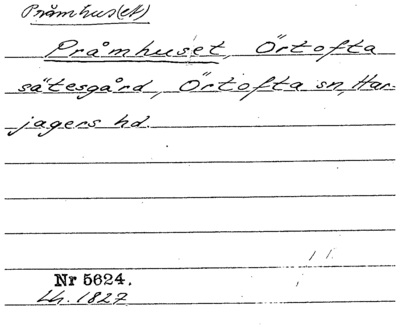 Pråmhus(et)
Pråmhuset, Örtofta
sätesgård, Örtofta sn, Har-
jagers hd.
Nr 5624.
Lh. 1827